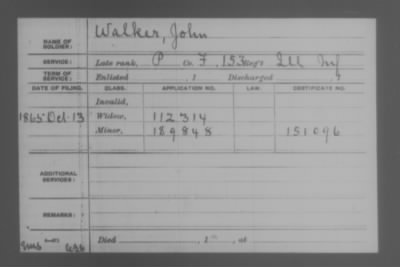 NAME OF SOLDIER: Walker, John
SERVICE: Late rank, P Co. F, 153 Reg't Ill Inf
TERM OF SERVICE: Enlisted , 1 Discharged , 1
DATE OF FILING. CLASS. APPLICATION NO. LAW. CERTIFICATE NO.
Invalid,
1865 Oct-13 Widow, 112314
Minor, 189848 151096
ADDITIONAL SERVICES:
REMARKS:
Died , 1 , at